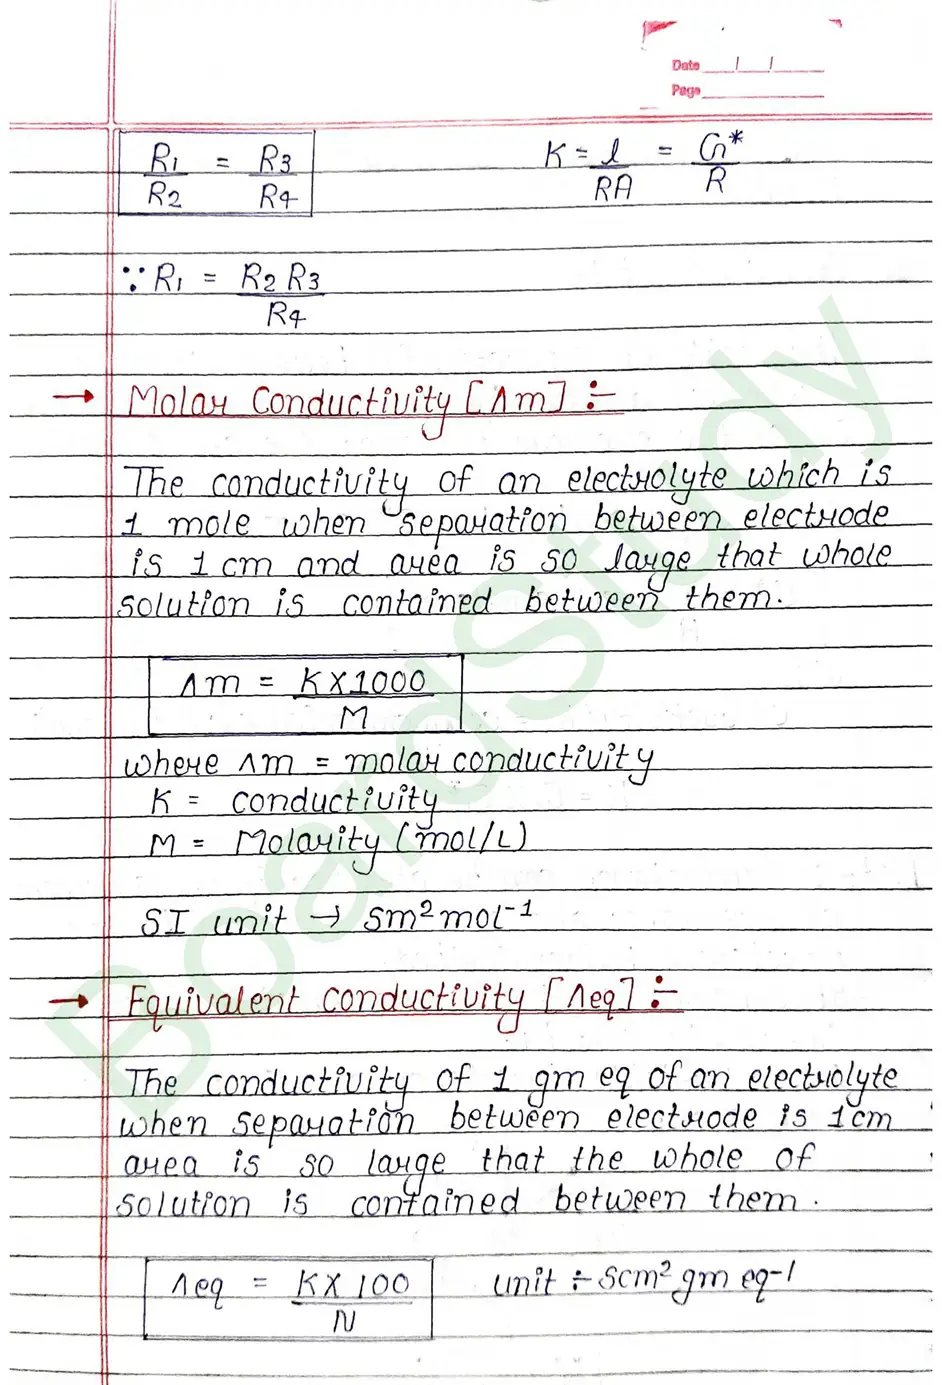 Date / /
Page
R1/R2 = R3/R4
K = l/RA = G*/R
∵ R1 = R2 R3/R4
→ Molar Conductivity [Λm] ÷
The conductivity of an electrolyte which is
1 mole when separation between electrode
is 1 cm and area is so large that whole
solution is contained between them.
Λm = K X 1000/M
where Λm = molar conductivity
K = conductivity
M = Molarity (mol/L)
SI unit → Sm²mol⁻¹
→ Equivalent conductivity [Λeq] ÷
The conductivity of 1 gm eq of an electrolyte
when separation between electrode is 1cm
area is so large that the whole of
solution is contained between them.
Λeq = K X 100/N
unit ÷ Scm² gm eq⁻¹
BoardStudy